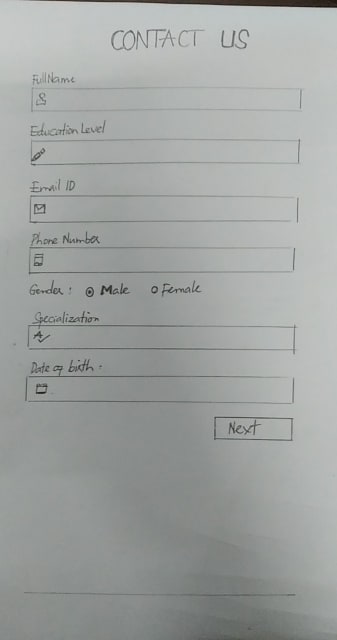 CONTACT US
Full Name
Education Level
Email ID
Phone Number
Gender : Male Female
Specialization
Date of birth :
Next